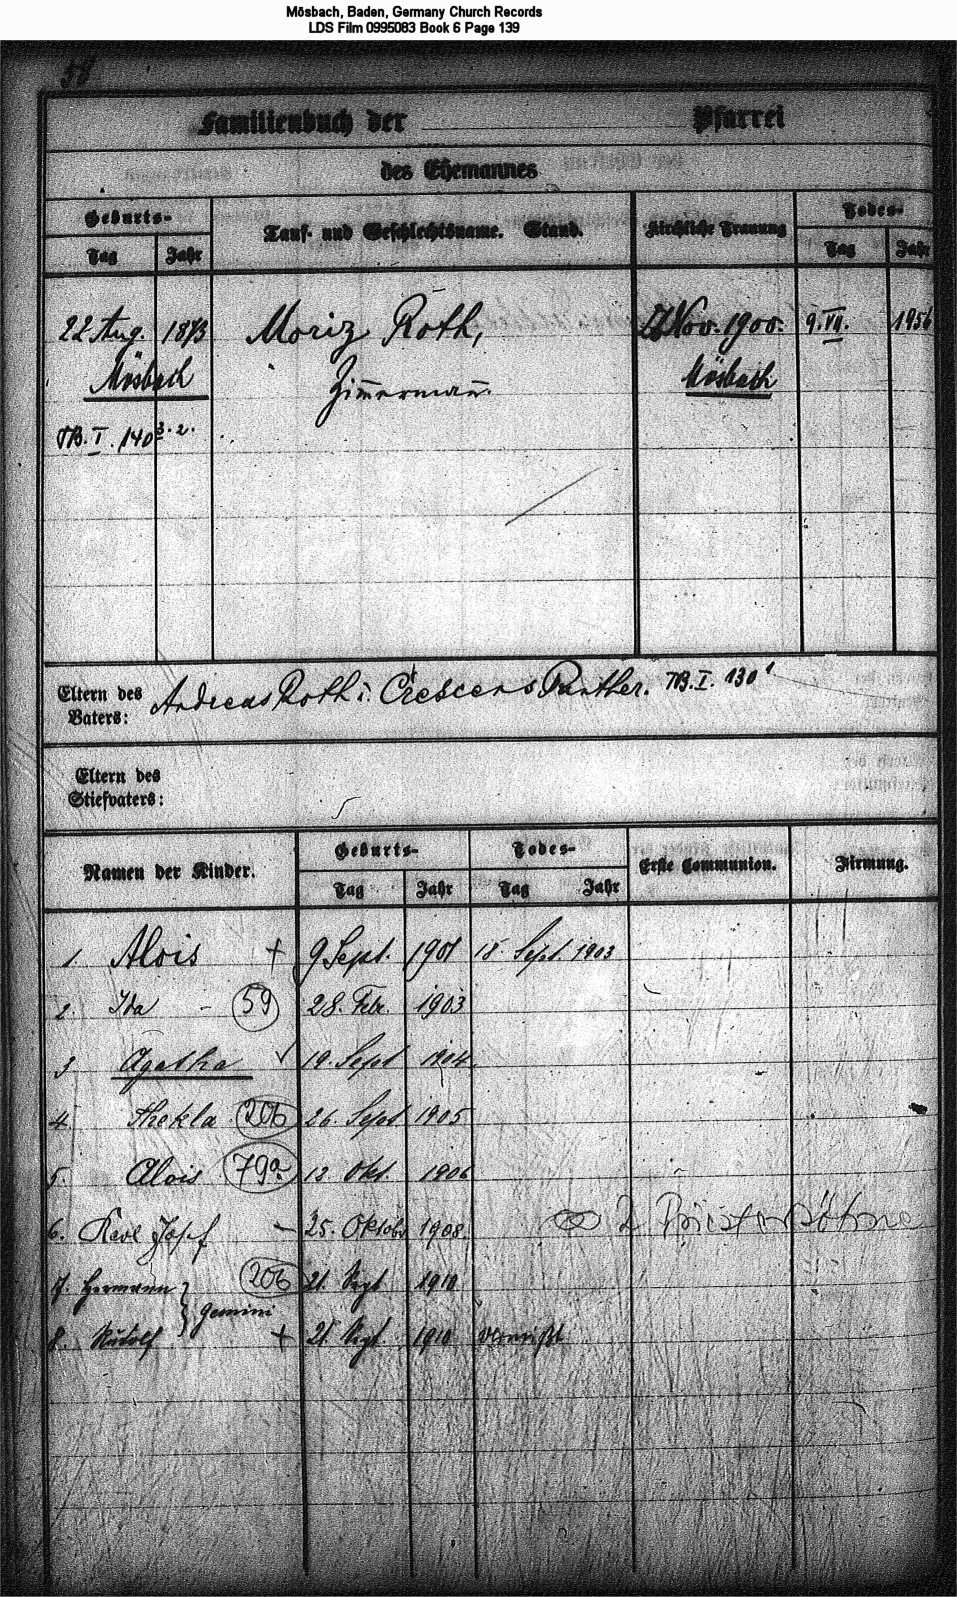 Mösbach, Baden, Germany Church Records
LDS Film 0995083 Book 6 Page 139
58
Familienbuch der Pfarrei
des Ehemannes
Geburts- Tauf- und Geschlechtsname. Stand. Kirchliche Trauung Todes-
Tag Jahr Tag Jahr
22 Aug. 1873 Moriz Roth, Nov. 1900. 9. VII. 1956
Mösbach Zimmermann. Mösbach
TB. I. 140 3. 2.
Eltern des Vaters: Andreas Roth u. Crescens Panther. TB. I. 130 1
Eltern des
Stiefvaters:
Namen der Kinder. Geburts- Todes- Erste Communion. Firmung.
Tag Jahr Tag Jahr
1 Alois + 9 Sept. 1901 18 Sept. 1903
2. Ida - 59 28. Febr. 1903
3 Agatha ✓ 19. Sept 1904.
4. Thekla 206 26. Sept 1905
5. Alois 79a 12 Okt. 1906
6. Karl Josef - 25. Oktobr 1908. 2 Priestersöhne
7. Hermann 206 21. Sept 1910
Gemini
8. Rudolf + 21. Sept. 1910 vermißt